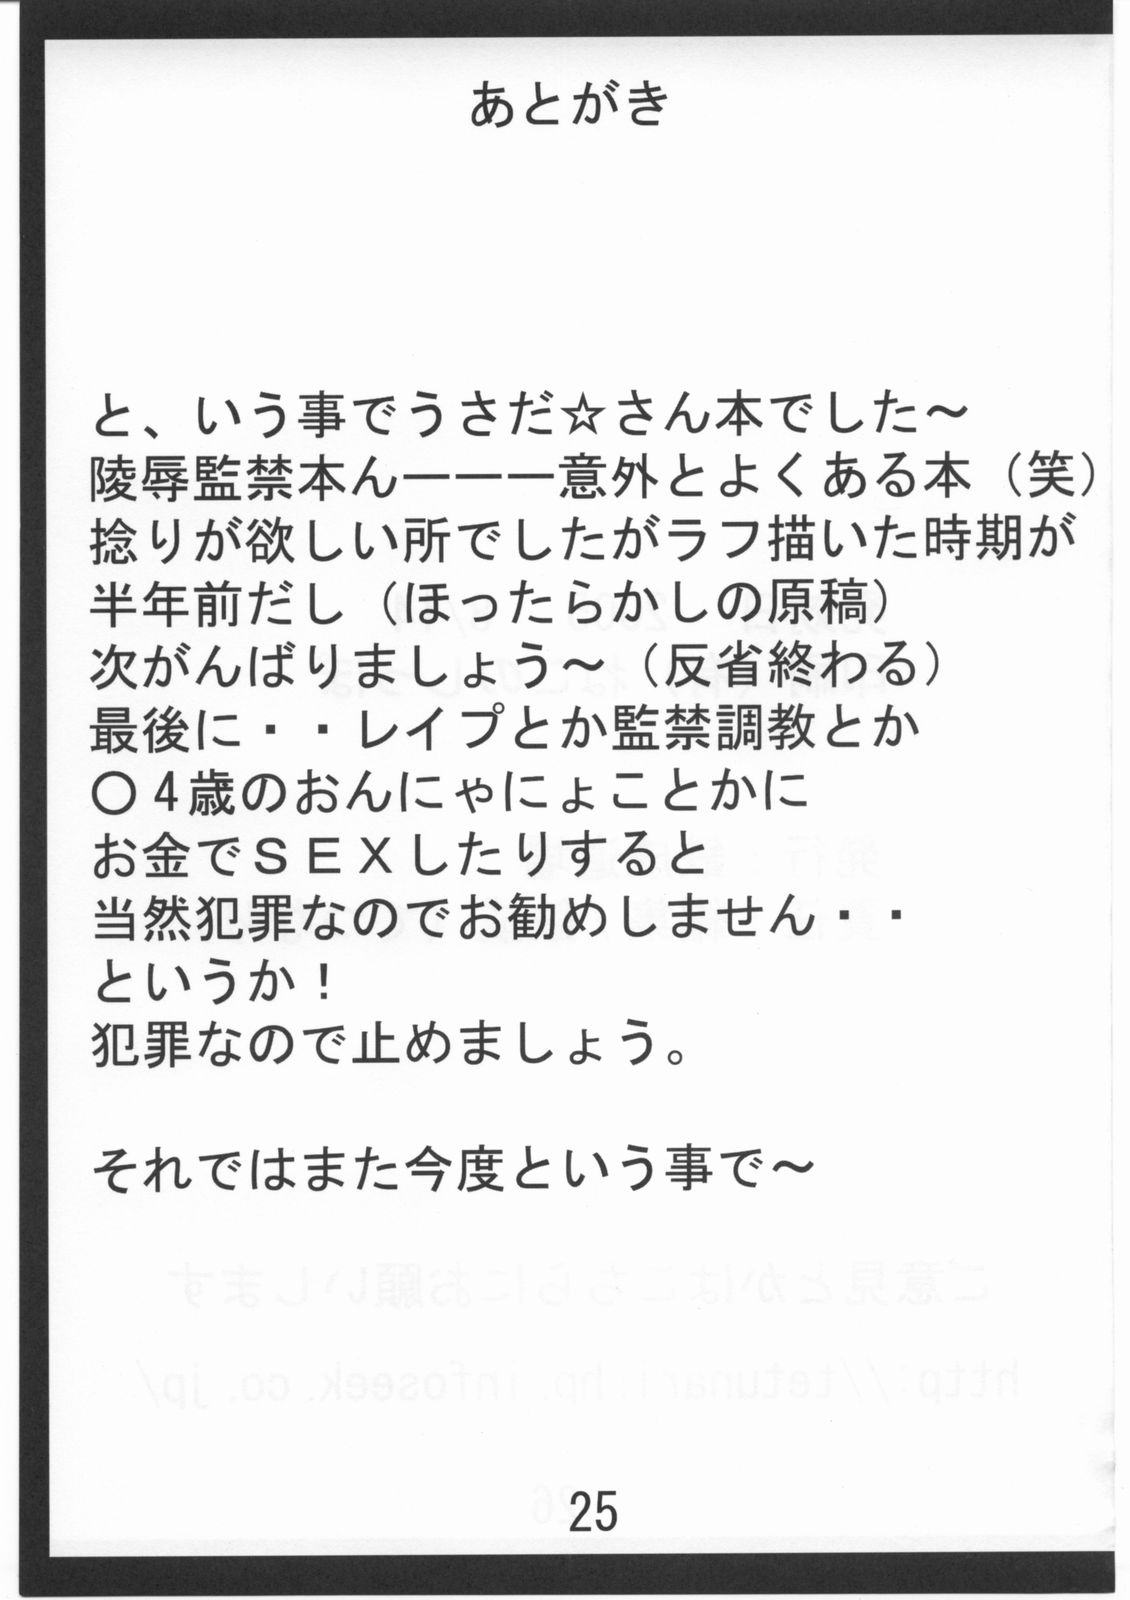 あとがき
と、いう事でうさだ☆さん本でした～
陵辱監禁本ん―――意外とよくある本（笑）
捻りが欲しい所でしたがラフ描いた時期が
半年前だし（ほったらかしの原稿）
次がんばりましょう～（反省終わる）
最後に・・レイプとか監禁調教とか
〇4歳のおんにゃにょことかに
お金でＳＥＸしたりすると
当然犯罪なのでお勧めしません・・
というか！
犯罪なので止めましょう。
それではまた今度という事で～
ご意見とかはこちらにお願いします
25